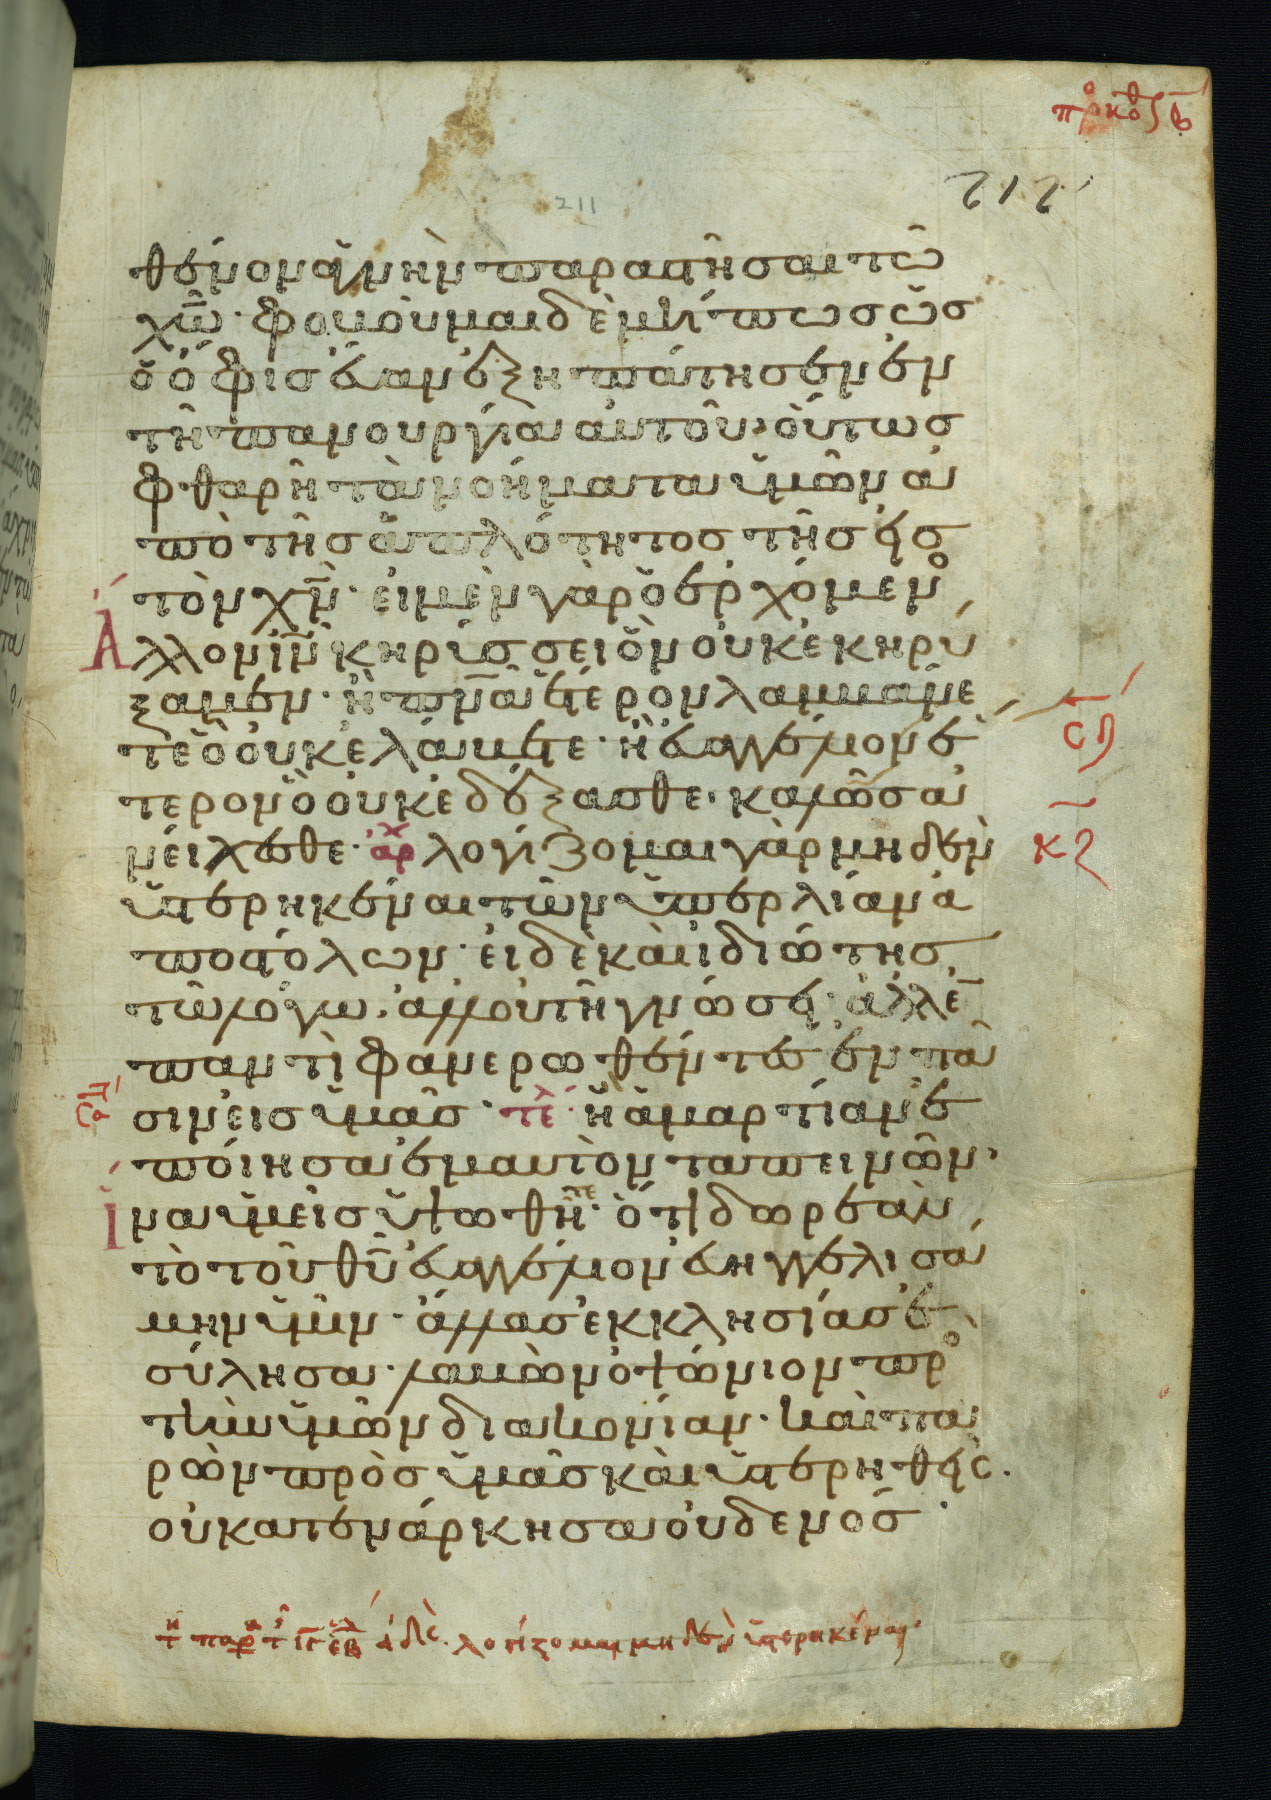 πρ κορ β
212
211
θένον ἁγνὴν παραστῆσαι τῶ
χω̅· φοβοῦμαι δὲ μήπως ὡς
ὁ ὄφις εὐὰν ἐξηπάτησεν ἐν
τῆ πανουργία αὐτοῦ· οὕτως
φθαρῆ τὰ νοήματα ὑμῶν ἀ
πὸ τῆς ἁπλότητος τῆς εἰς
τὸν χν̅· εἰ μὲν γὰρ ὁ ἐρχόμενο
ἄλλον ιν̅ κηρύσσει ὃν οὐκ ἐκηρύ
ξαμεν· ἢ πνα̅ ἕτερον λαμβάνε
τε ὃ οὐκ ἐλάβετε· ἢ εὐαγγέλιον ἕ
τερον ὃ οὐκ ἐδέξασθε· καλῶς ἀ
νείχεσθε· ἀρχ λογίζομαι γὰρ μηδὲν
ὑστερηκέναι τῶν ὑπερλίαν ἀ
ποστόλων· εἰ δὲ καὶ ἰδιώτης
τῶ λόγω· ἀλλ οὐ τῆ γνώσει· ἀλλ ἐ
παντὶ φανερωθέντες ἐν πᾶ
σιν εἰς ὑμᾶς· τέλ· ἢ ἁμαρτίαν ἐ
ποίησα ἐμαυτὸν ταπεινῶν·
ἵνα ὑμεῖς ὑψωθῆτε· ὅτι δωρεὰν
τὸ τοῦ θυ̅ εὐαγγέλιον εὐηγγελισά
μην ὑμῖν· ἄλλας ἐκκλησίας ἐ
σύλησα· λαβὼν ὀψώνιον προ
τὴν ὑμῶν διακονίαν· καὶ πα
ρὼν πρὸς ὑμᾶς καὶ ὑστερηθεὶς·
οὐ κατενάρκησα οὐδενός·
τη παρ τ ιγ εβ ἀδε· λογίζομαι μηδὲν ὑστερηκέναι